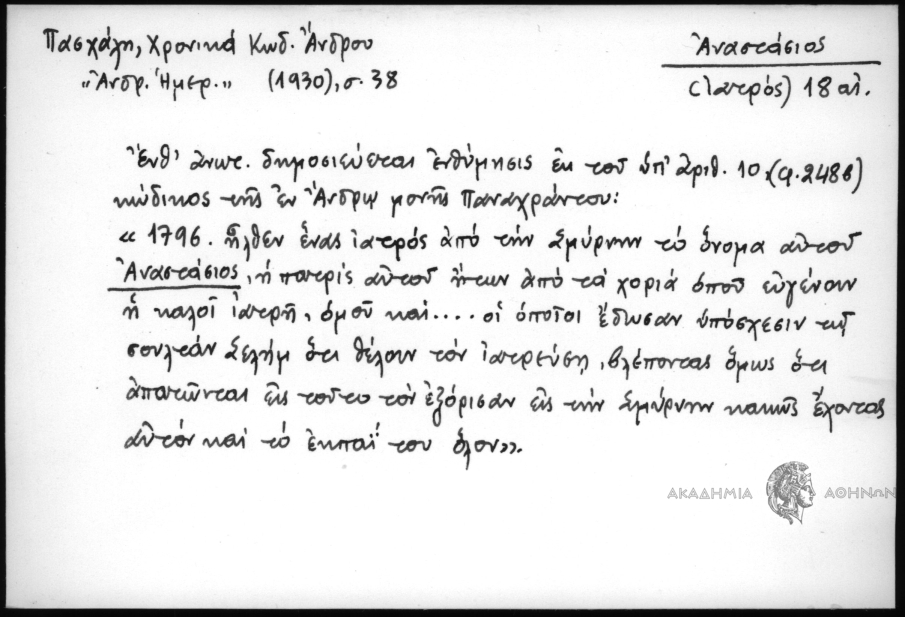 Πασχάλη, Χρονικά Κωδ. Ἄνδρου
"Ἀνδρ. Ἡμερ." (1930), σ. 38
Ἀναστάσιος
(Ἰατρός) 18 αἰ.
Ἔνθ' ἀνωτ. δημοσιεύεται ἐνθύμησις ἐκ τοῦ ὑπ' ἀριθ. 10, (φ. 248β)
κώδικος τῆς ἐν Ἄνδρῳ μονῆς Παναχράντου:
« 1796. ἦλθεν ἕνας ἰατρός ἀπό τήν Σμύρνην τό ὄνομα αὐτοῦ
Ἀναστάσιος, ἡ πατρίς αὐτοῦ ἤτων ἀπό τά χοριά ὁποῦ εὐγένουν
ἡ καλοί ἰατρῆ, ὁμοῦ καί .... οἱ ὁποῖοι ἔδωσαν ὑπόσχεσιν τῷ
σουλτάν Σελήμ ὅτι θέλουν τόν ἰατρεύσῃ, βλέποντας ὅμως ὅτι
ἀπατῶνται εἰς τοῦτο τόν ἐξόρισαν εἰς τήν Σμύρνην κακῶς ἔχοντας
αὐτόν καί τό ἐκπαΐ του ὅλον».
ΑΚΑΔΗΜΙΑ ΑΘΗΝΩΝ